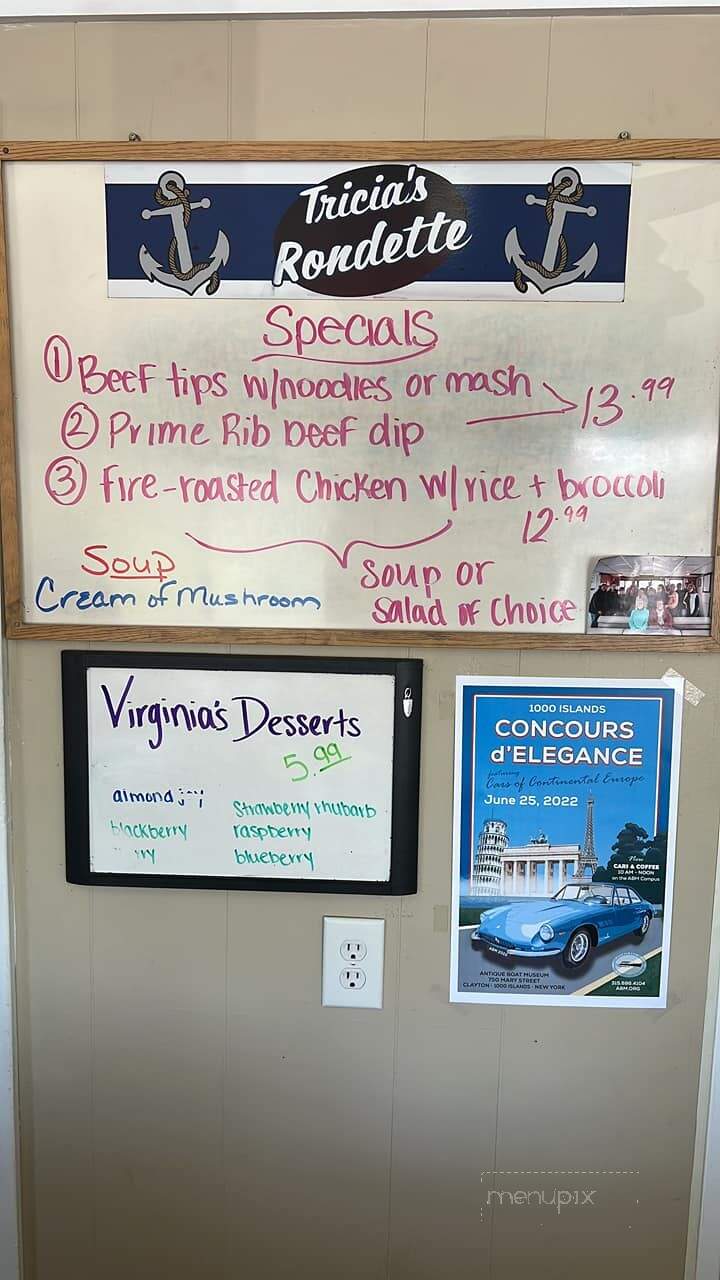 Tricia's
Rondette
Specials
① Beef tips w/noodles or mash
13.99
② Prime Rib beef dip
③ Fire-roasted Chicken w/rice + broccoli
12.99
Soup
Cream of Mushroom
Soup or
Salad of Choice
Virginia's Desserts
5.99
almond joy
blackberry
Strawberry rhubarb
raspberry
blueberry
1000 ISLANDS
CONCOURS
d'ELEGANCE
featuring
Cars of Continental Europe
June 25, 2022
New
CARS & COFFEE
10 AM - NOON
on the ABM Campus
ANTIQUE BOAT MUSEUM
750 MARY STREET
CLAYTON · 1000 ISLANDS · NEW YORK
315.686.4104
ABM.ORG
menupix